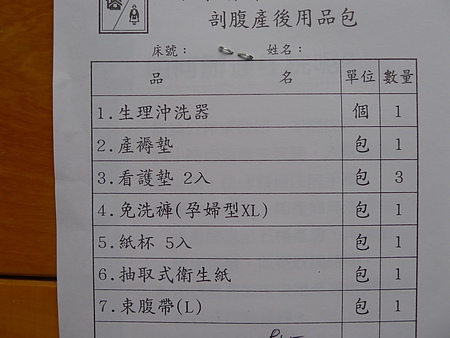 剖腹產後用品包
床號： 姓名：
品 名 單位 數量
1.生理沖洗器 個 1
2.產褥墊 包 1
3.看護墊 2入 包 3
4.免洗褲(孕婦型XL) 包 1
5.紙杯 5入 包 1
6.抽取式衛生紙 包 1
7.束腹帶(L) 包 1